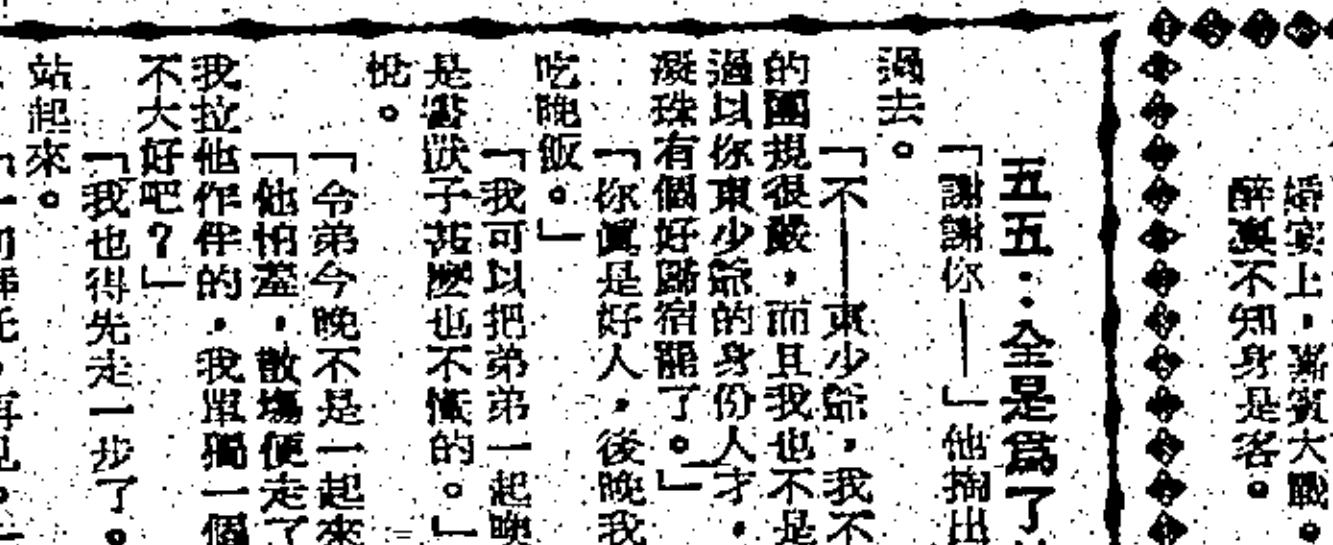 婚宴上，嘉賓大戰。
醉裏不知身是客。
五五：全是爲了
「謝謝你——」他掏出
過去。
「不——東少爺，我不
的團規很嚴，而且我也不是
過以你東少爺的身份人才，
凝珠有個好歸宿罷了。」
「你眞是好人，後晚我
吃晚飯。」
「我可以把弟弟一起
是書獃子甚麼也不懂的。」
他。
「令弟今晚不是一起來
「他怕羞，散塲便走了
我拉他作伴的，我單獨一個
不大好吧？」
「我也得先走一步了。
站起來。
「一切拜託，再見。